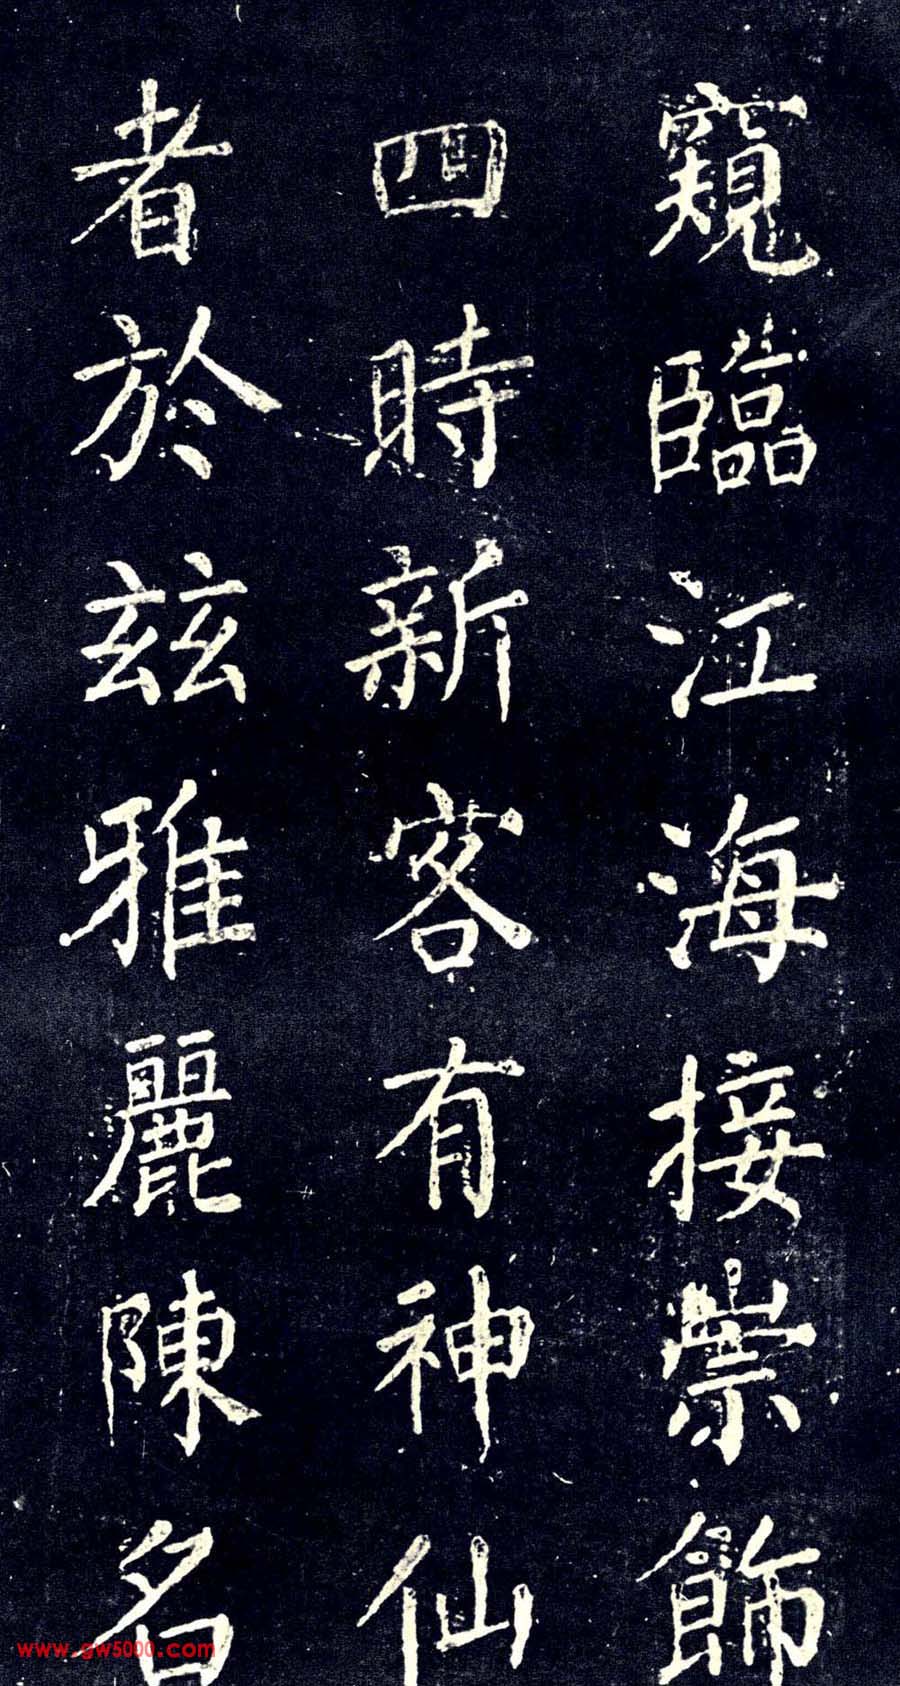 窺臨江海接崇飾
四時新客有神仙
者於兹雅麗陳名
www.gw5000.com